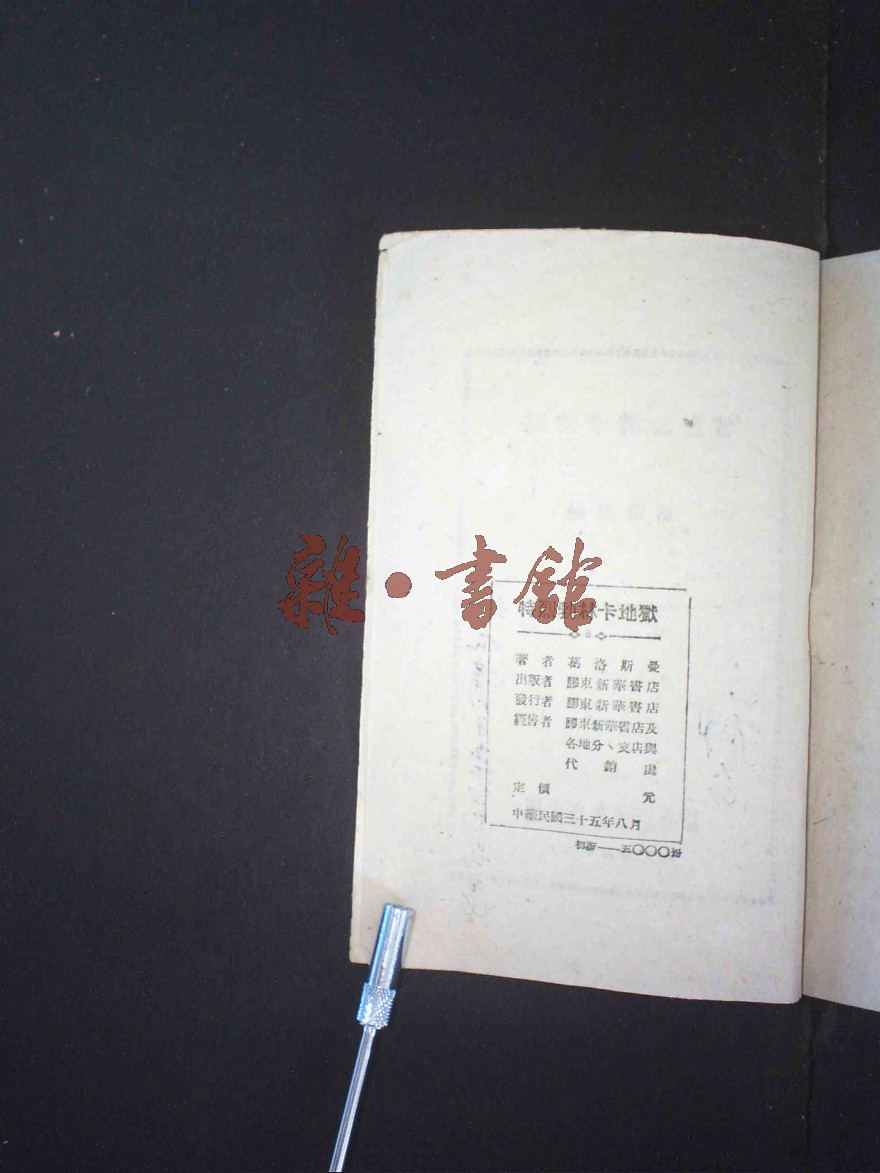 雜·書館
特列勃林卡地獄
著者 葛洛斯曼
出版者 膠東新華書店
發行者 膠東新華書店
經售者 膠東新華書店及
各地分、支店與
代銷處
定價 元
中華民國三十五年八月
初版——五〇〇〇冊